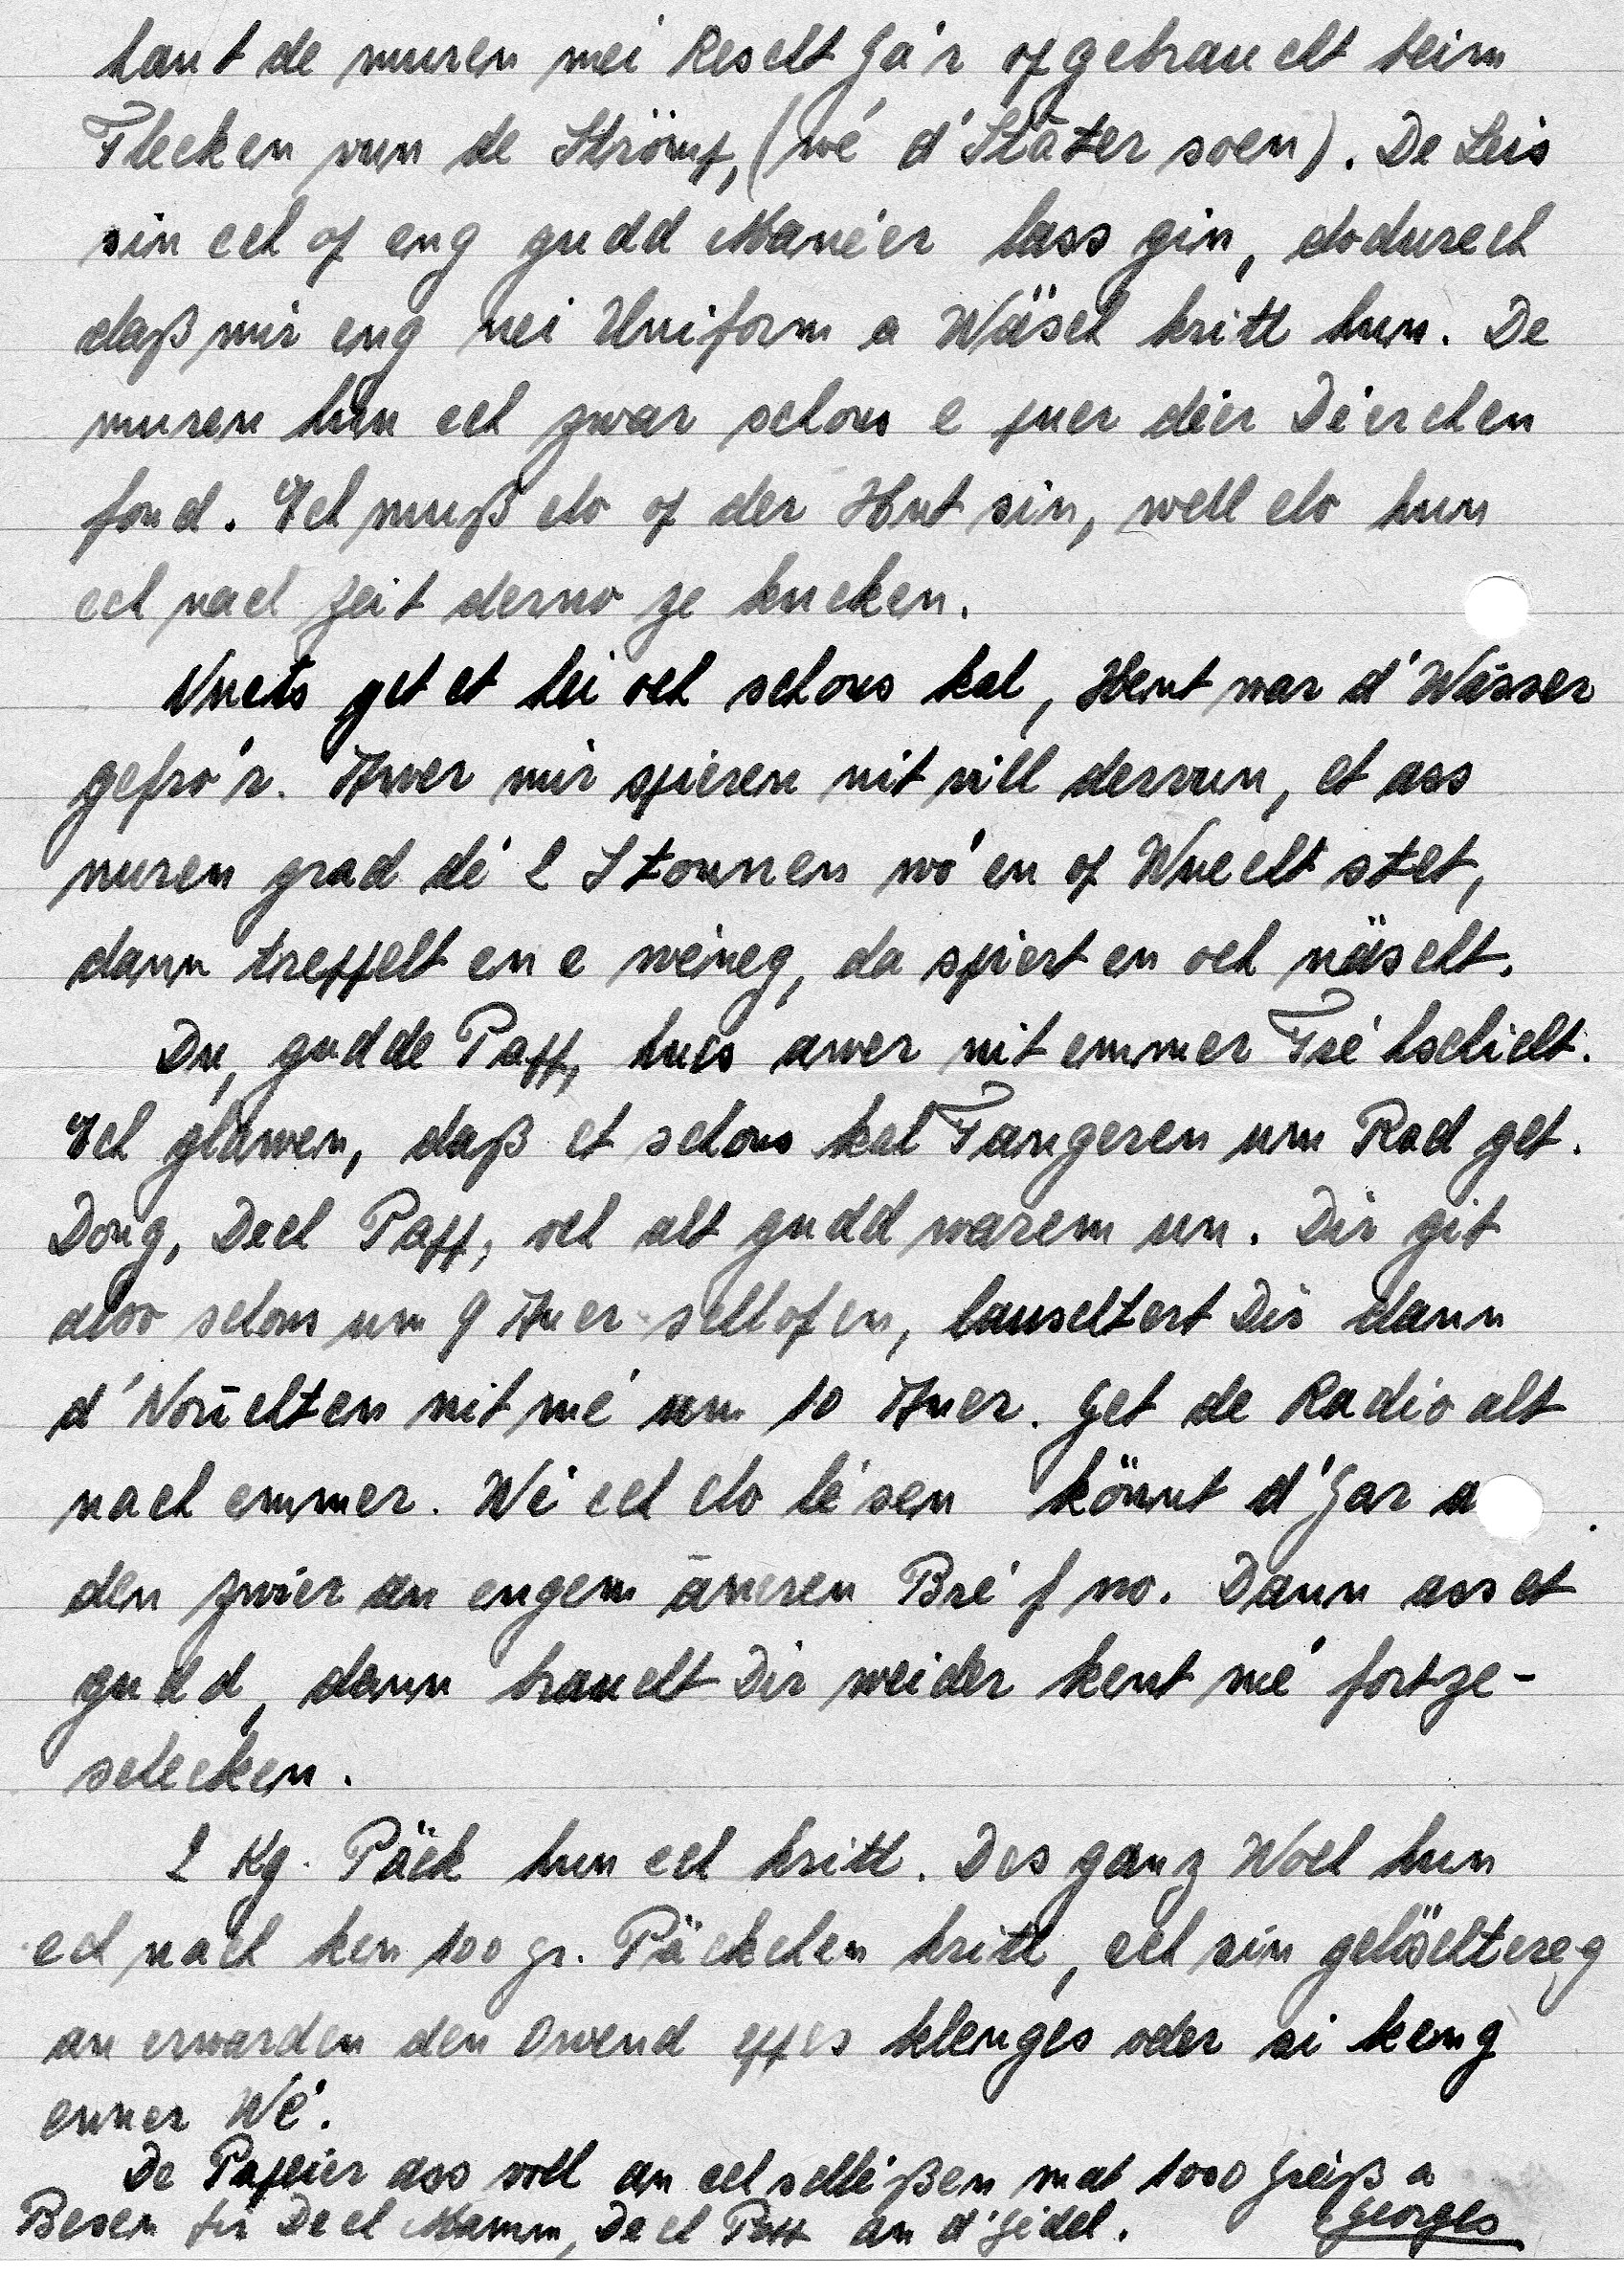 haut de muren mei Rescht Ga'r opgebraucht beim
Flecken vun de Strömp, (wé d'Stāter soen). De Leis
sin ech op eng gudd Manéer lass gin, dodurech
daß mir eng nei Uniform a Wäsch kritt hun. De
muren hun ech zwar schons e puer déer Déerchen
fond. Ech muß do op der Hut sin, well do hun
ech nach Zeit derno ze kucken.
Nuets get et hei och schons kal, Hent war d'Wässer
gefro'r. Awer mir spieren nit vill dervun, et ass
nuren grad dé 2 Stonnen wó en op Wuecht stet,
dann treppelt en e wéineg, da spiert en och näscht.
Du, gudde Papp, hues awer nit emmer Fréhschicht.
Ech glawen, daß et schons kal Fangeren um Rad get.
Dong, Dech Papp, och alt gudd warem un. Dir git
awer schons um 9 Auer schlofen, lauschtert Dir dann
d'Noūchten nit mé um 10 Auer. Get de Radio alt
nach emmer. Wé ech do lésen könnt d'Gar a
den Zwier an engem āneren Bréf no. Dann ass et
gudd, dann braucht Dir weider kent mé fortze-
schecken.
2 Kg. Päck hun ech kritt. Des ganz Woch hun
ech nach ken 100 gr. Päckchen kritt, ech sin gelöschtereg
an erwarden den Owend eppes klenges oder si keng
enner Wé.
De Papeier ass voll an ech schléßen mat 1000 Gréiß a
Besen fir Dech Mamm, Dech Papp an d'Gidel. Georges